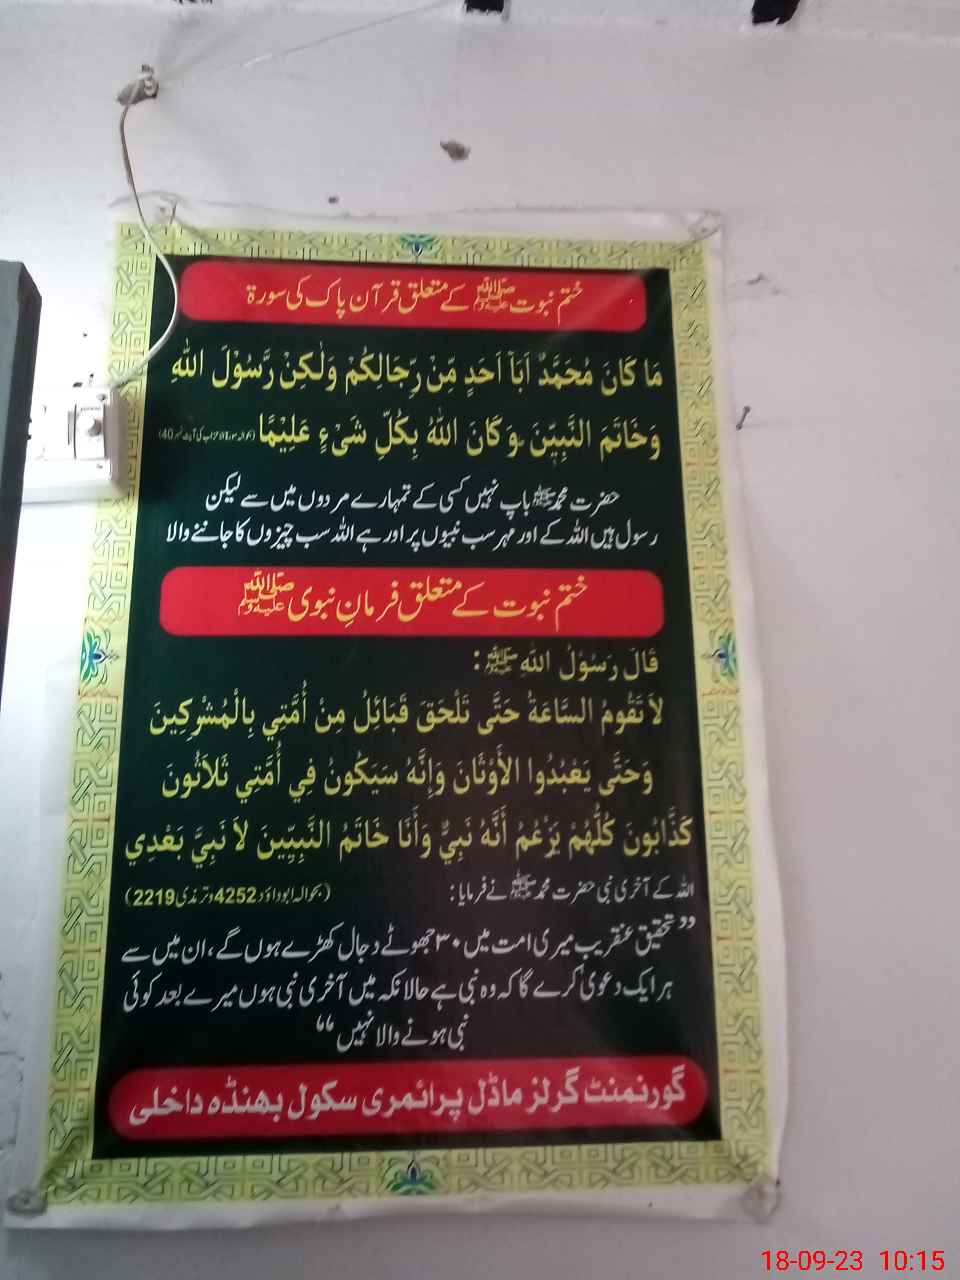 ختم نبوت ﷺ کے متعلق قرآن پاک کی سورۃ
مَا كَانَ مُحَمَّدٌ اَبَآ اَحَدٍ مِّنْ رِّجَالِكُمْ وَلٰكِنْ رَّسُوْلَ اللهِ
وَخَاتَمَ النَّبِيّٖنَ ۔ وَكَانَ اللهُ بِكُلِّ شَىْءٍ عَلِيْمًا (بحوالہ سورۃ الاحزاب کی آیت نمبر 40)
حضرت محمد ﷺ باپ نہیں کسی کے تمہارے مردوں میں سے لیکن
رسول ہیں اللہ کے اور مہر سب نبیوں پر اور ہے اللہ سب چیزوں کا جاننے والا
ختم نبوت کے متعلق فرمانِ نبوی ﷺ
قَالَ رَسُوْلُ اللهِ ﷺ :
لاَ تَقُومُ السَّاعَةُ حَتَّى تَلْحَقَ قَبَائِلُ مِنْ أُمَّتِي بِالْمُشْرِكِينَ
وَحَتَّى يَعْبُدُوا الأَوْثَانَ وَإِنَّهُ سَيَكُونُ فِي أُمَّتِي ثَلاَثُونَ
كَذَّابُونَ كُلُّهُمْ يَزْعُمُ أَنَّهُ نَبِيٌّ وَأَنَا خَاتَمُ النَّبِيِّينَ لاَ نَبِيَّ بَعْدِي
اللہ کے آخری نبی حضرت محمد ﷺ نے فرمایا : (بحوالہ ابوداؤد 4252 و ترمذی 2219)
”تحقیق عنقریب میری امت میں ۳۰ جھوٹے دجال کھڑے ہوں گے، ان میں سے
ہر ایک دعویٰ کرے گا کہ وہ نبی ہے حالانکہ میں آخری نبی ہوں میرے بعد کوئی
نبی ہونے والا نہیں“
گورنمنٹ گرلز ماڈل پرائمری سکول بھنڈہ داخلی
18-09-23 10:15